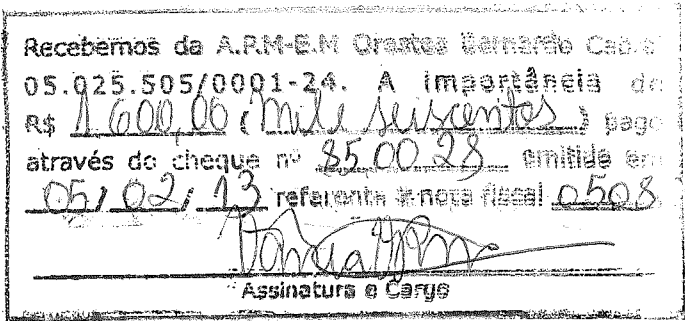 Recebemos da A.P.M-E.M Orestes Bernardo
05.025.505/0001-24. A importância de
R$ 1.600,00 (Mil e seiscentos) pago
através do cheque nº 850028 emitido em
05/02/13 referente a nota fiscal 0508
Assinatura e Cargo